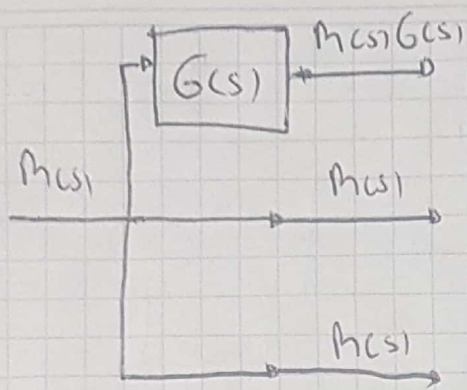 R(s)G(s)
G(s)
R(s)
R(s)
R(s)